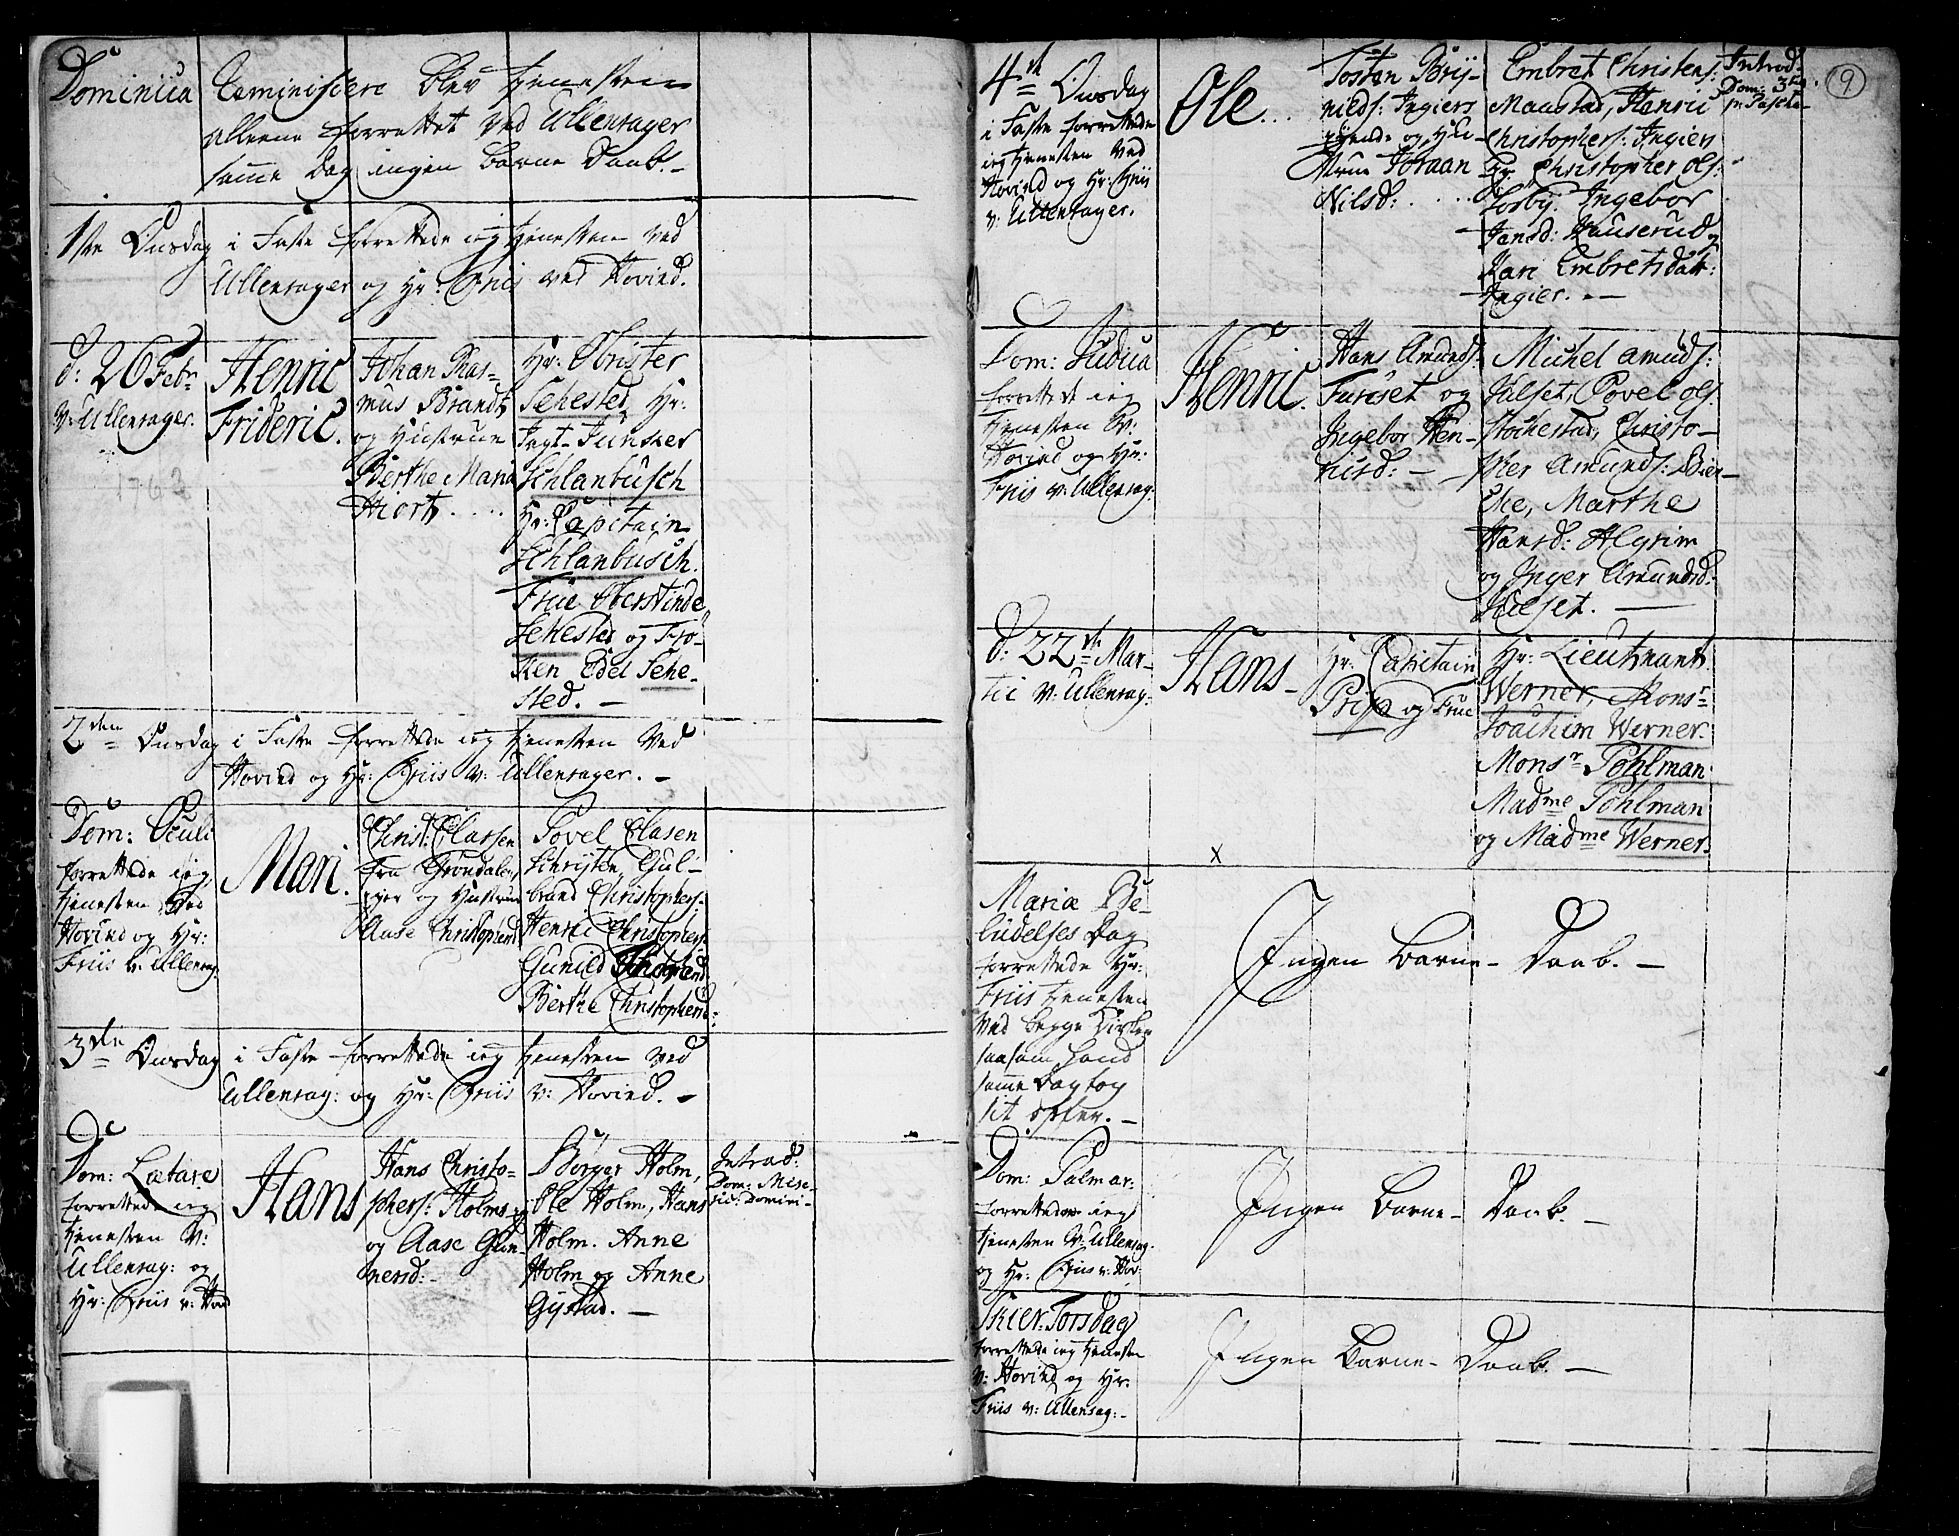 Dominica Reminiscere blev tienesten
alleene forrettet ved Ullensager
samme Dag ingen Barne Daab. -
1ste Onsdag i Faste forrettede ieg tienesten ved
Ullensager og Hr: Friis ved Hovind.
d: 26 Febr:
v: Ullensager.
1762
Henric
Frideric.
Johan Ras-
mus Brandt
og Hustrue
Berthe Maria
Hiort. ....
Hr: Obrister
Sehested, Hr:
Jagt-Junker
Schlanbusch
Hr: Capitain
Schlanbusch.
Frue Oberstinde
Sehested og Frö-
ken Edel Sehe-
sted. -
2den Onsdag i Faste forrettede ieg tienesten ved
Hovind og Hr: Friis v: Ullensager. -
Dom: Oculi
forrettede ieg
tienesten ved
Hovind og Hr:
Friis v: Ullensag:
Mari.
Christ: Clasen
fra Gröndalen
og Hustrue
Aase Christophersd
Povel Clasen
Gul-
brand Christophers:
Henric Christophers:
Gunild
Berthe Christophersd:
3die Onsdag i Faste forrettede ieg tienesten ved
Ullensag: og Hr: Friis v: Hovind. -
Dom: Lætare
forrettede ieg
tienesten v:
Ullensag: og
Hr: Friis v: Hovd
Hans
Hans Christo-
phers: Holms
og Aase Gun-
nersd: -
Börger Holm,
Ole Holm, Hans
Holm. Anne
Holm og Anne
Gystad. -
Introd:
Dom: Mise-
ric: Domini -
9
4de Onsdag
i Faste forrettede
ieg tienesten ved
Hovind og Hr: Friis
v: Ullensager.
Ole...
Tosten Bryn-
nilds: Ingiers
eyende og Hu-
strue Joraan
Nilsd: ....
Embret Christens:
Maustad, Henric
Christophers: Ingier
Christopher Ols:
Ingebor
Jensd: Hauserud,
Kari Embretsdatt:
Ingier. -
Introd:
Dom: 3tia
p: Pascha
Dom: Judica
forrettede ieg
tienesten v:
Hovind og Hr:
Friis v: Ullensag:
Henric.
Hans Amunds:
Furuset og
Ingebor Hen-
ricsd: -
Michel Amuds:
Julset, Povel Ols.
Stochestad, Christo-
pher Amunds: Bier-
che, Marthe
Hansd: Algrim
og Inger Amundsd:
Julset. -
d: 22de Mar-
tii v: Ullensag:
Hans -
Hr: Capitain
Prip og Frue
Hr: Lieutnant
Werner, Monsr
Joachim Werner.
Monsr Pohlman
Madme Pohlman
og Madme Werner.
x
Mariæ Be-
budelses Dag
forrettede Hr:
Friis tienesten
ved begge Kirker
saasom hand
samme Dag tog
sit offer. -
Ingen Barne - Daab. -
Dom: Palmar:
forrettede ieg
tienesten v: Ullensag.
og Hr: Friis v: Hov:
Ingen Barne - Daab. -
Skier-Torsdag
forrettede ieg tienesten
v: Hovind og Hr:
Friis v: Ullensag: -
Ingen Barne - Daab. -